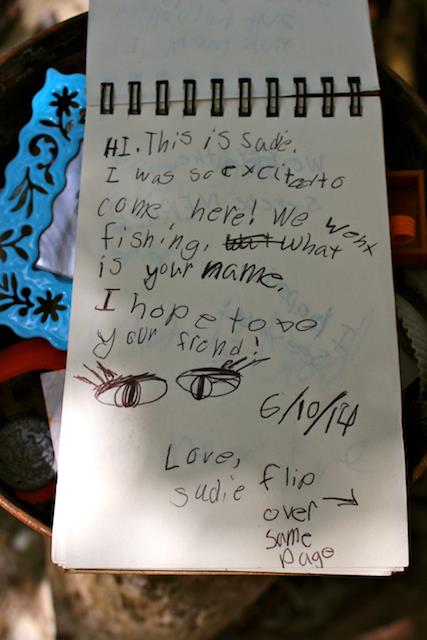 HI. This is Sadie.
I was so excited to
come here! We went
fishing. What
is your name.
I hope to be
your frend!
6/10/14
Love,
sadie
flip
over →
same
page